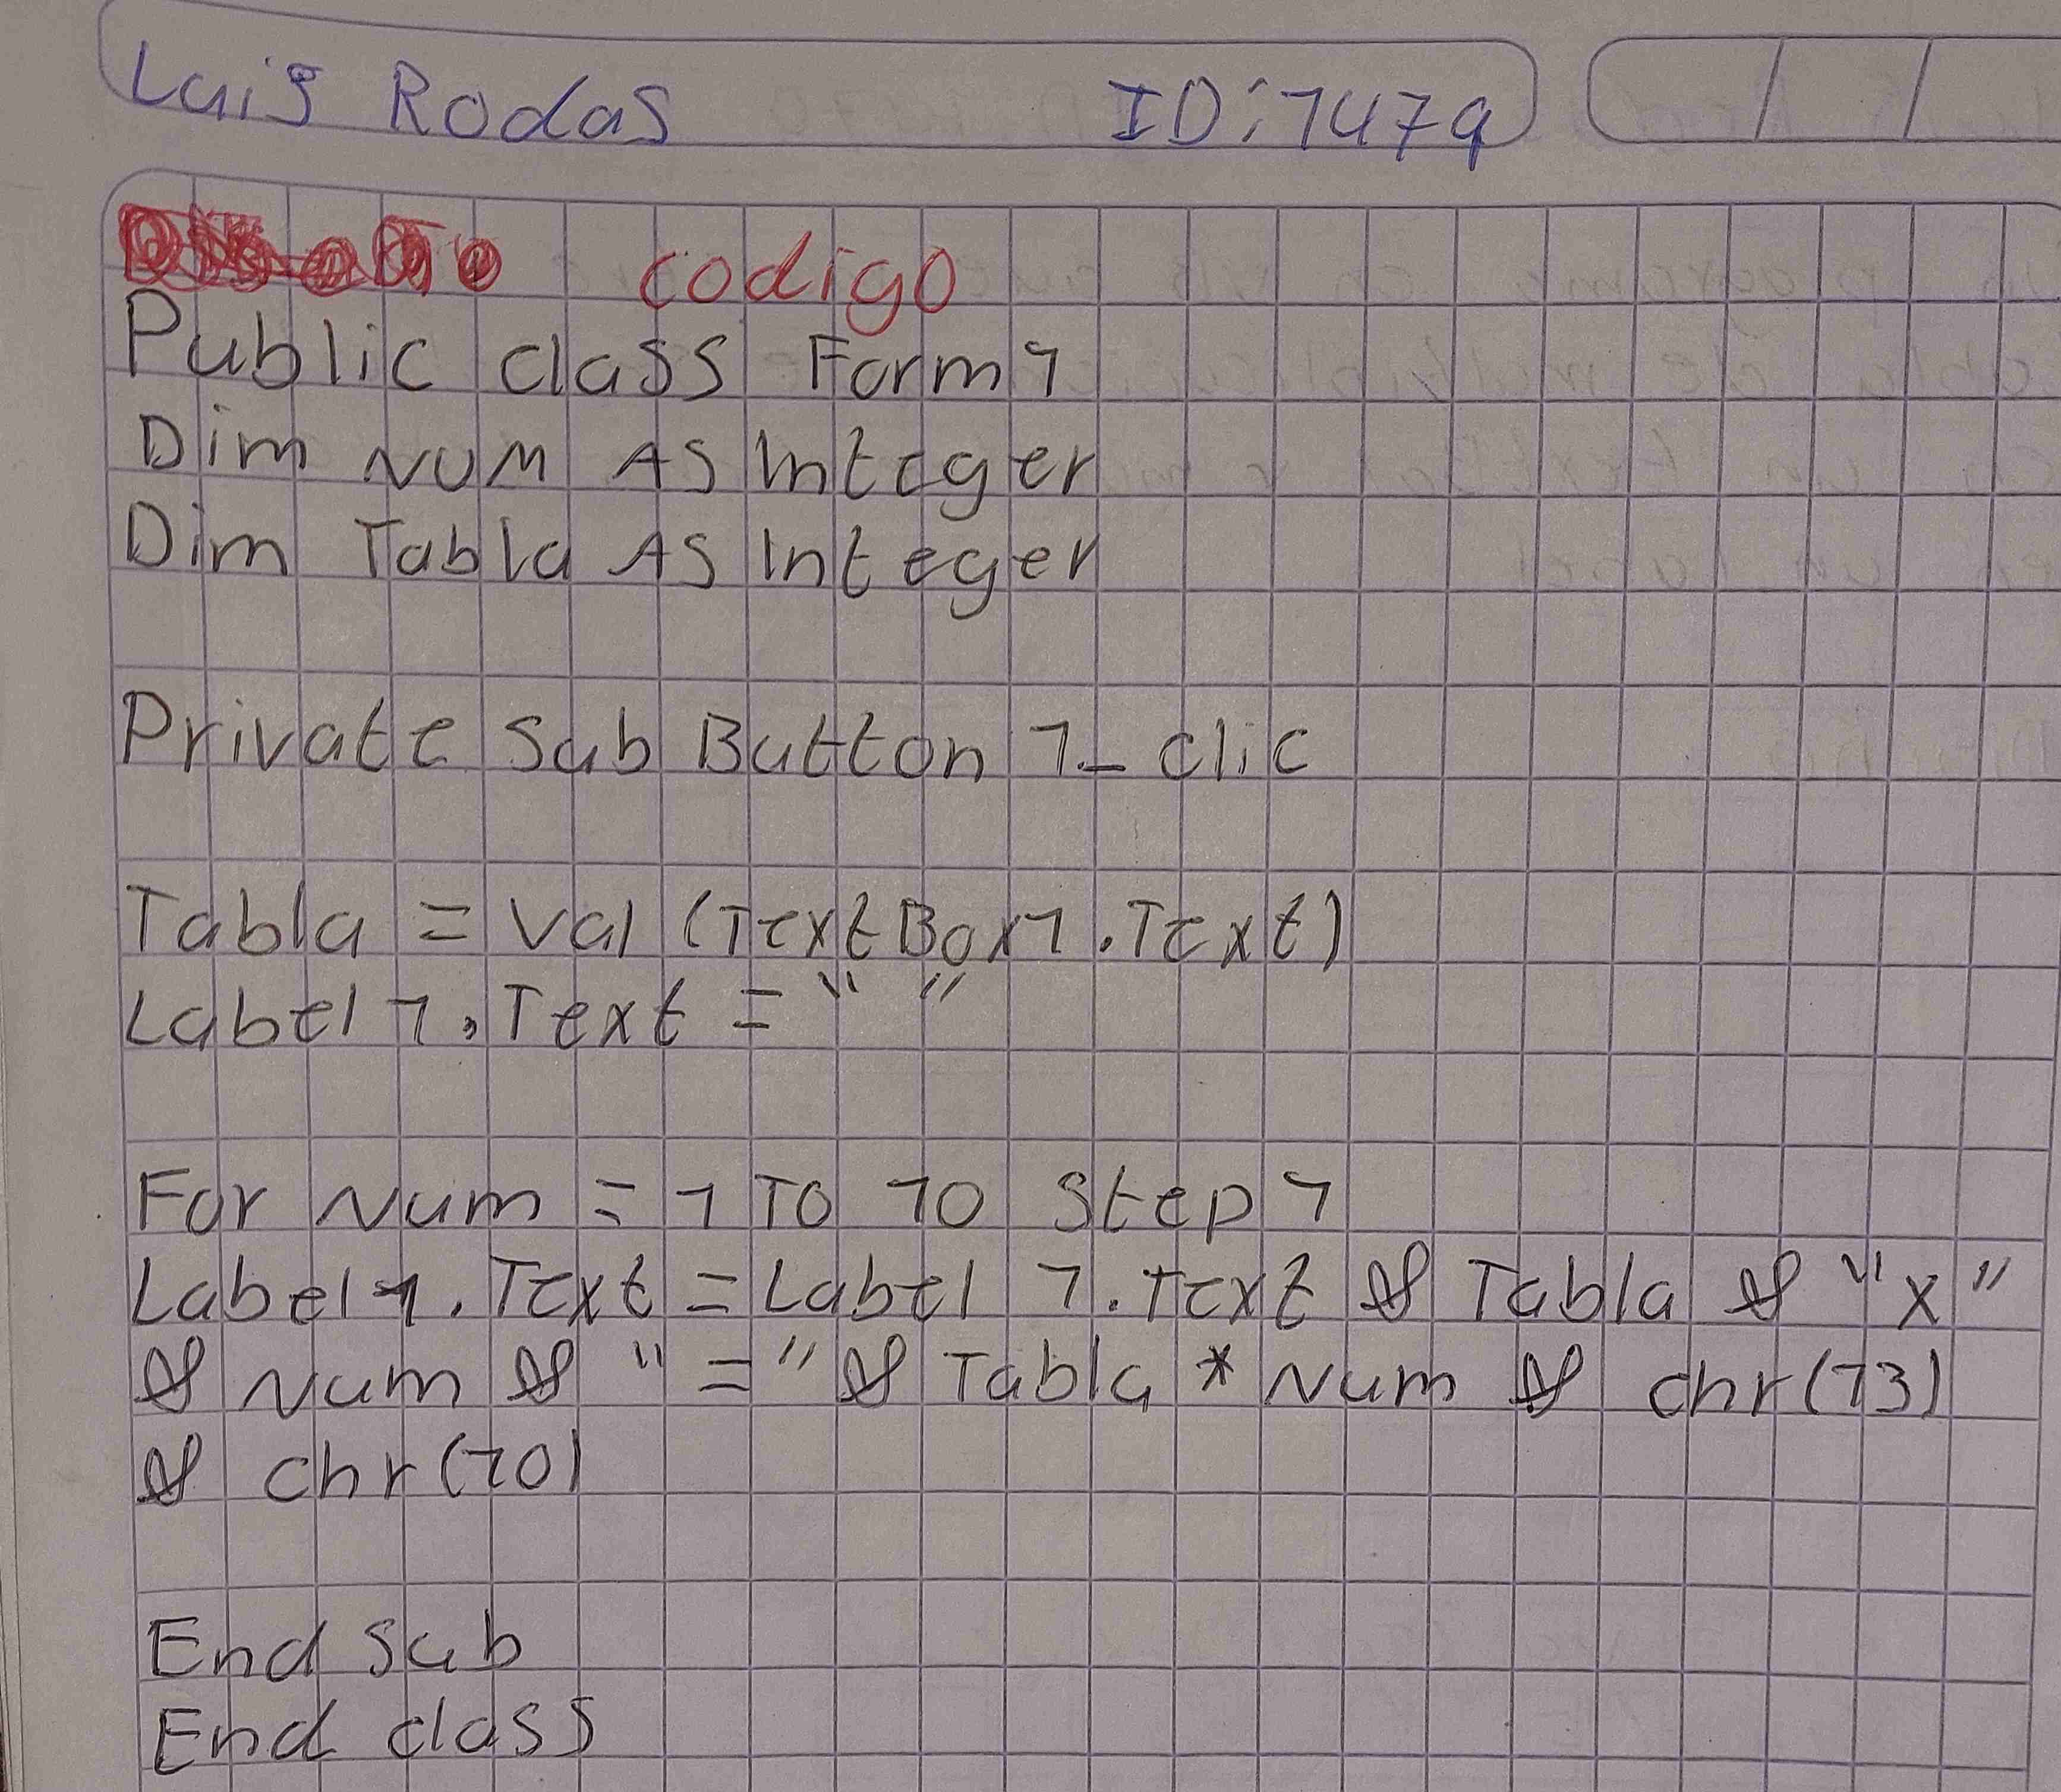 Luis Rodas ID:1479
codigo
Public class Form1
Dim NUM AS Integer
Dim Tabla AS Integer
Private Sub Button 1_clic
Tabla = Val (TextBox1.Text)
Label 1.Text = " "
For Num = 1 TO 10 Step 1
Label 1.Text = Label 1.Text & Tabla & "x"
& Num & "=" & Tabla * Num & chr(13)
& chr(10)
End Sub
End class